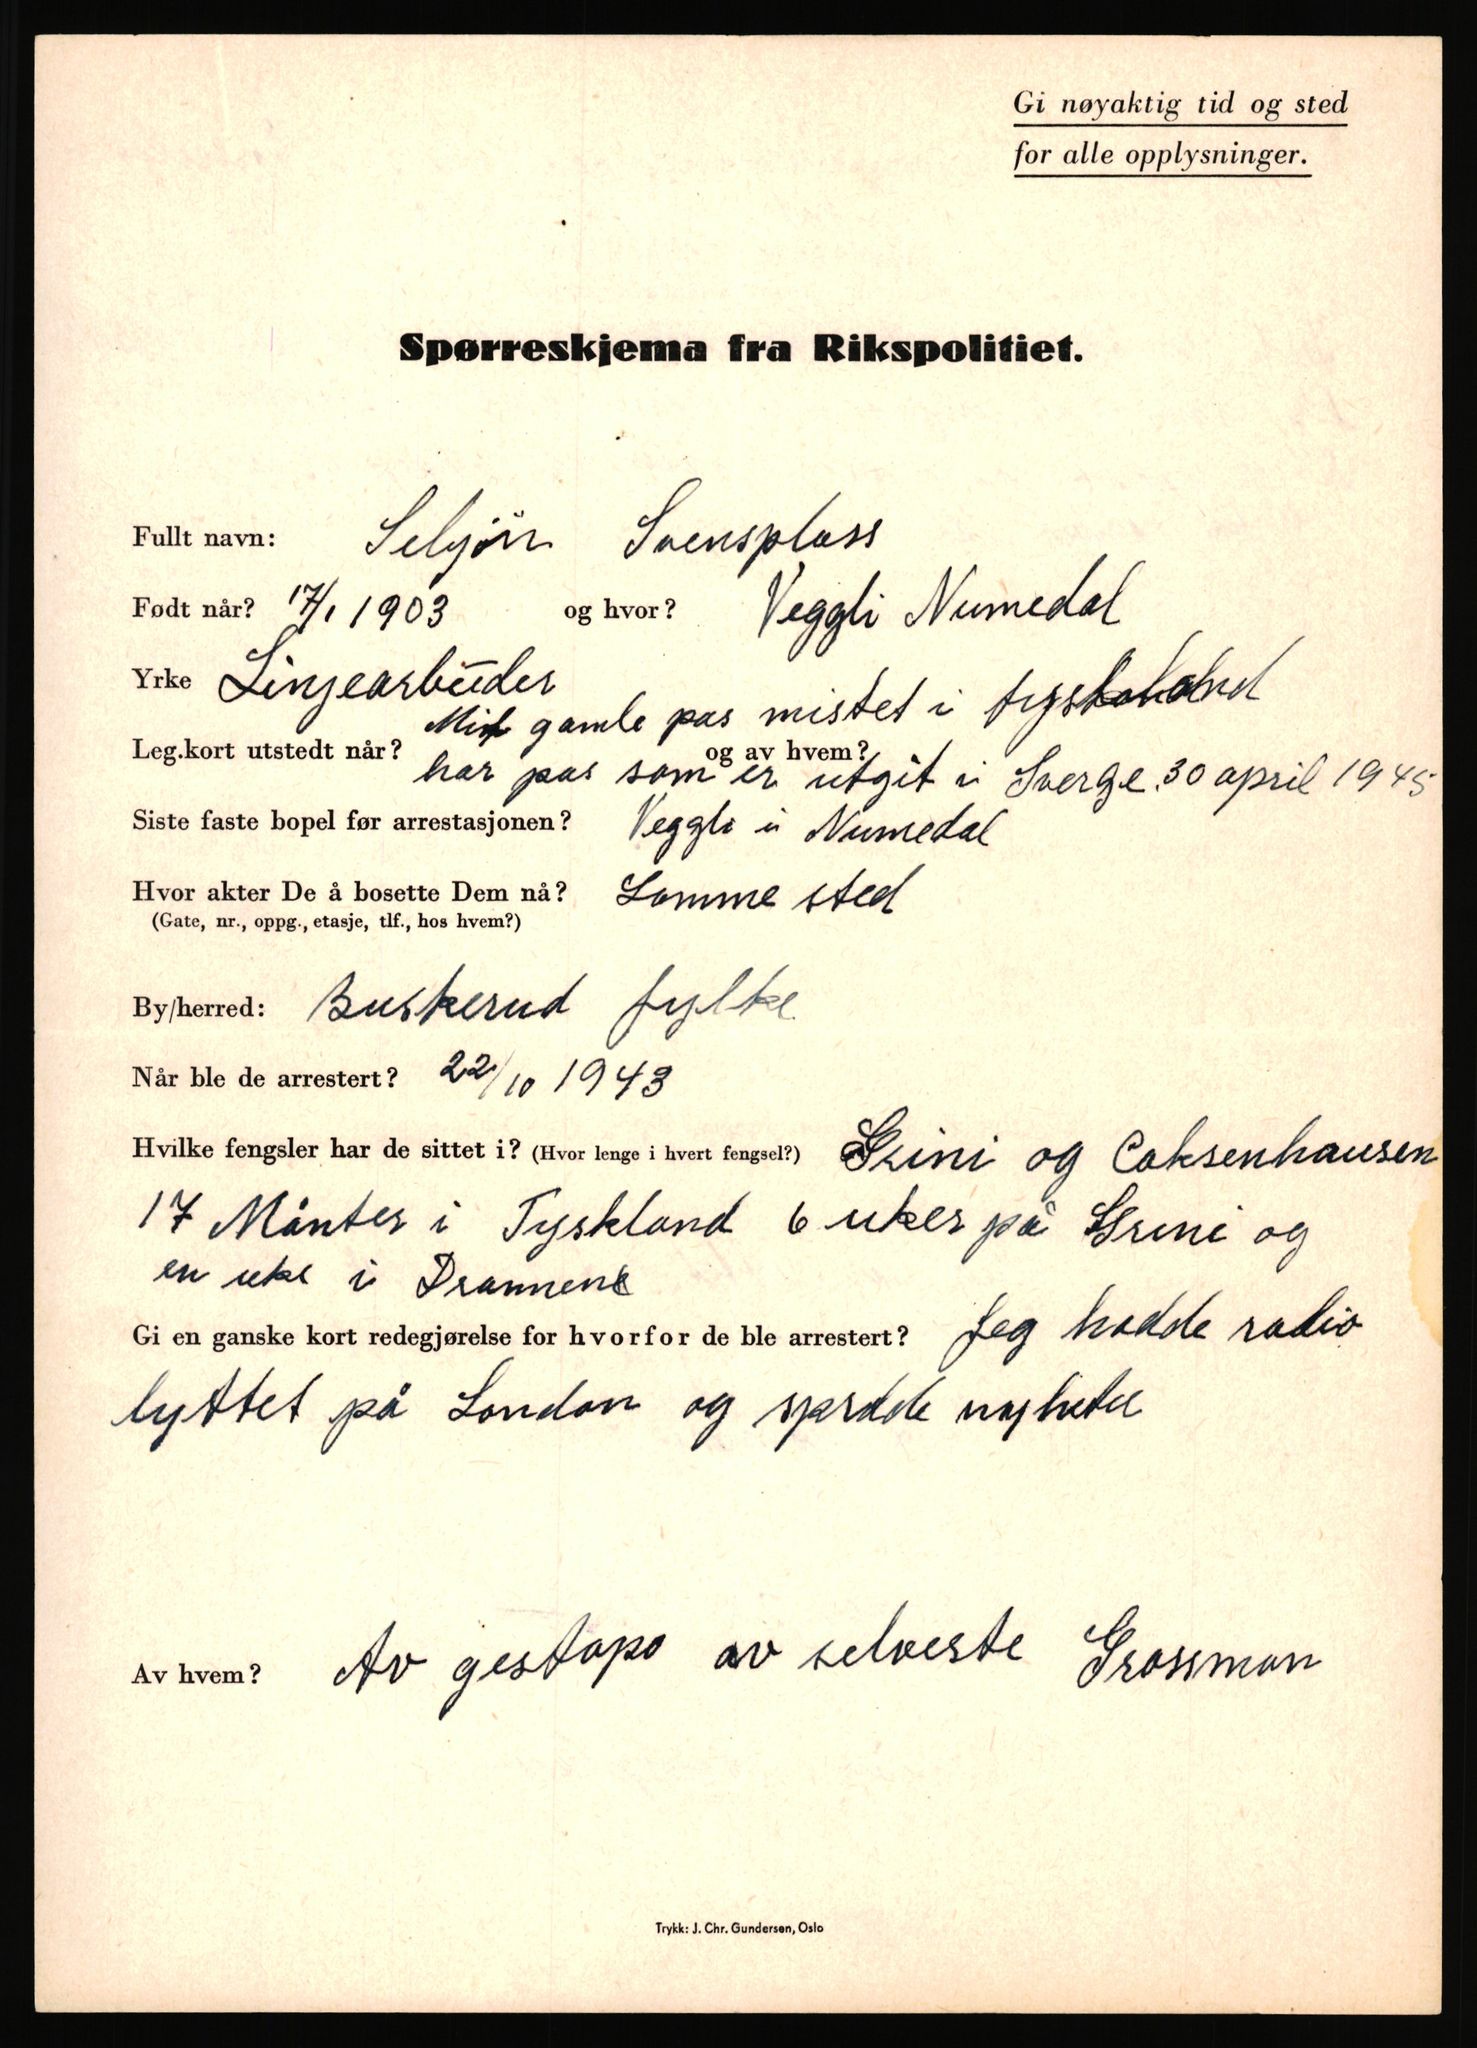 Gi nøyaktig tid og sted
for alle opplysninger.
Spørreskjema fra Rikspolitiet.
Fullt navn: Selyör Svensplass
Født når? 17/1 1903 og hvor? Veggli Numedal
Yrke Linjearbeider
Mit gamle pas mistet i tyskland
Leg.kort utstedt når? og av hvem?
har pas som er utgit i Sverge. 30 april 1945
Siste faste bopel før arrestasjonen? Veggli i Numedal
Hvor akter De å bosette Dem nå? Samme sted
(Gate, nr., oppg., etasje, tlf., hos hvem?)
By/herred: Buskerud fylke
Når ble de arrestert? 22/10 1943
Hvilke fengsler har de sittet i? (Hvor lenge i hvert fengsel?) Grini og Caksenhausen
17 Månter i Tyskland 6 uker på Grini og
en uke i Drammen
Gi en ganske kort redegjørelse for hvorfor de ble arrestert? Jeg hadde radio
lyttet på London og spredde nyheter
Av hvem? Av gestapo av selveste Grossman
Trykk: J. Chr. Gundersen, Oslo